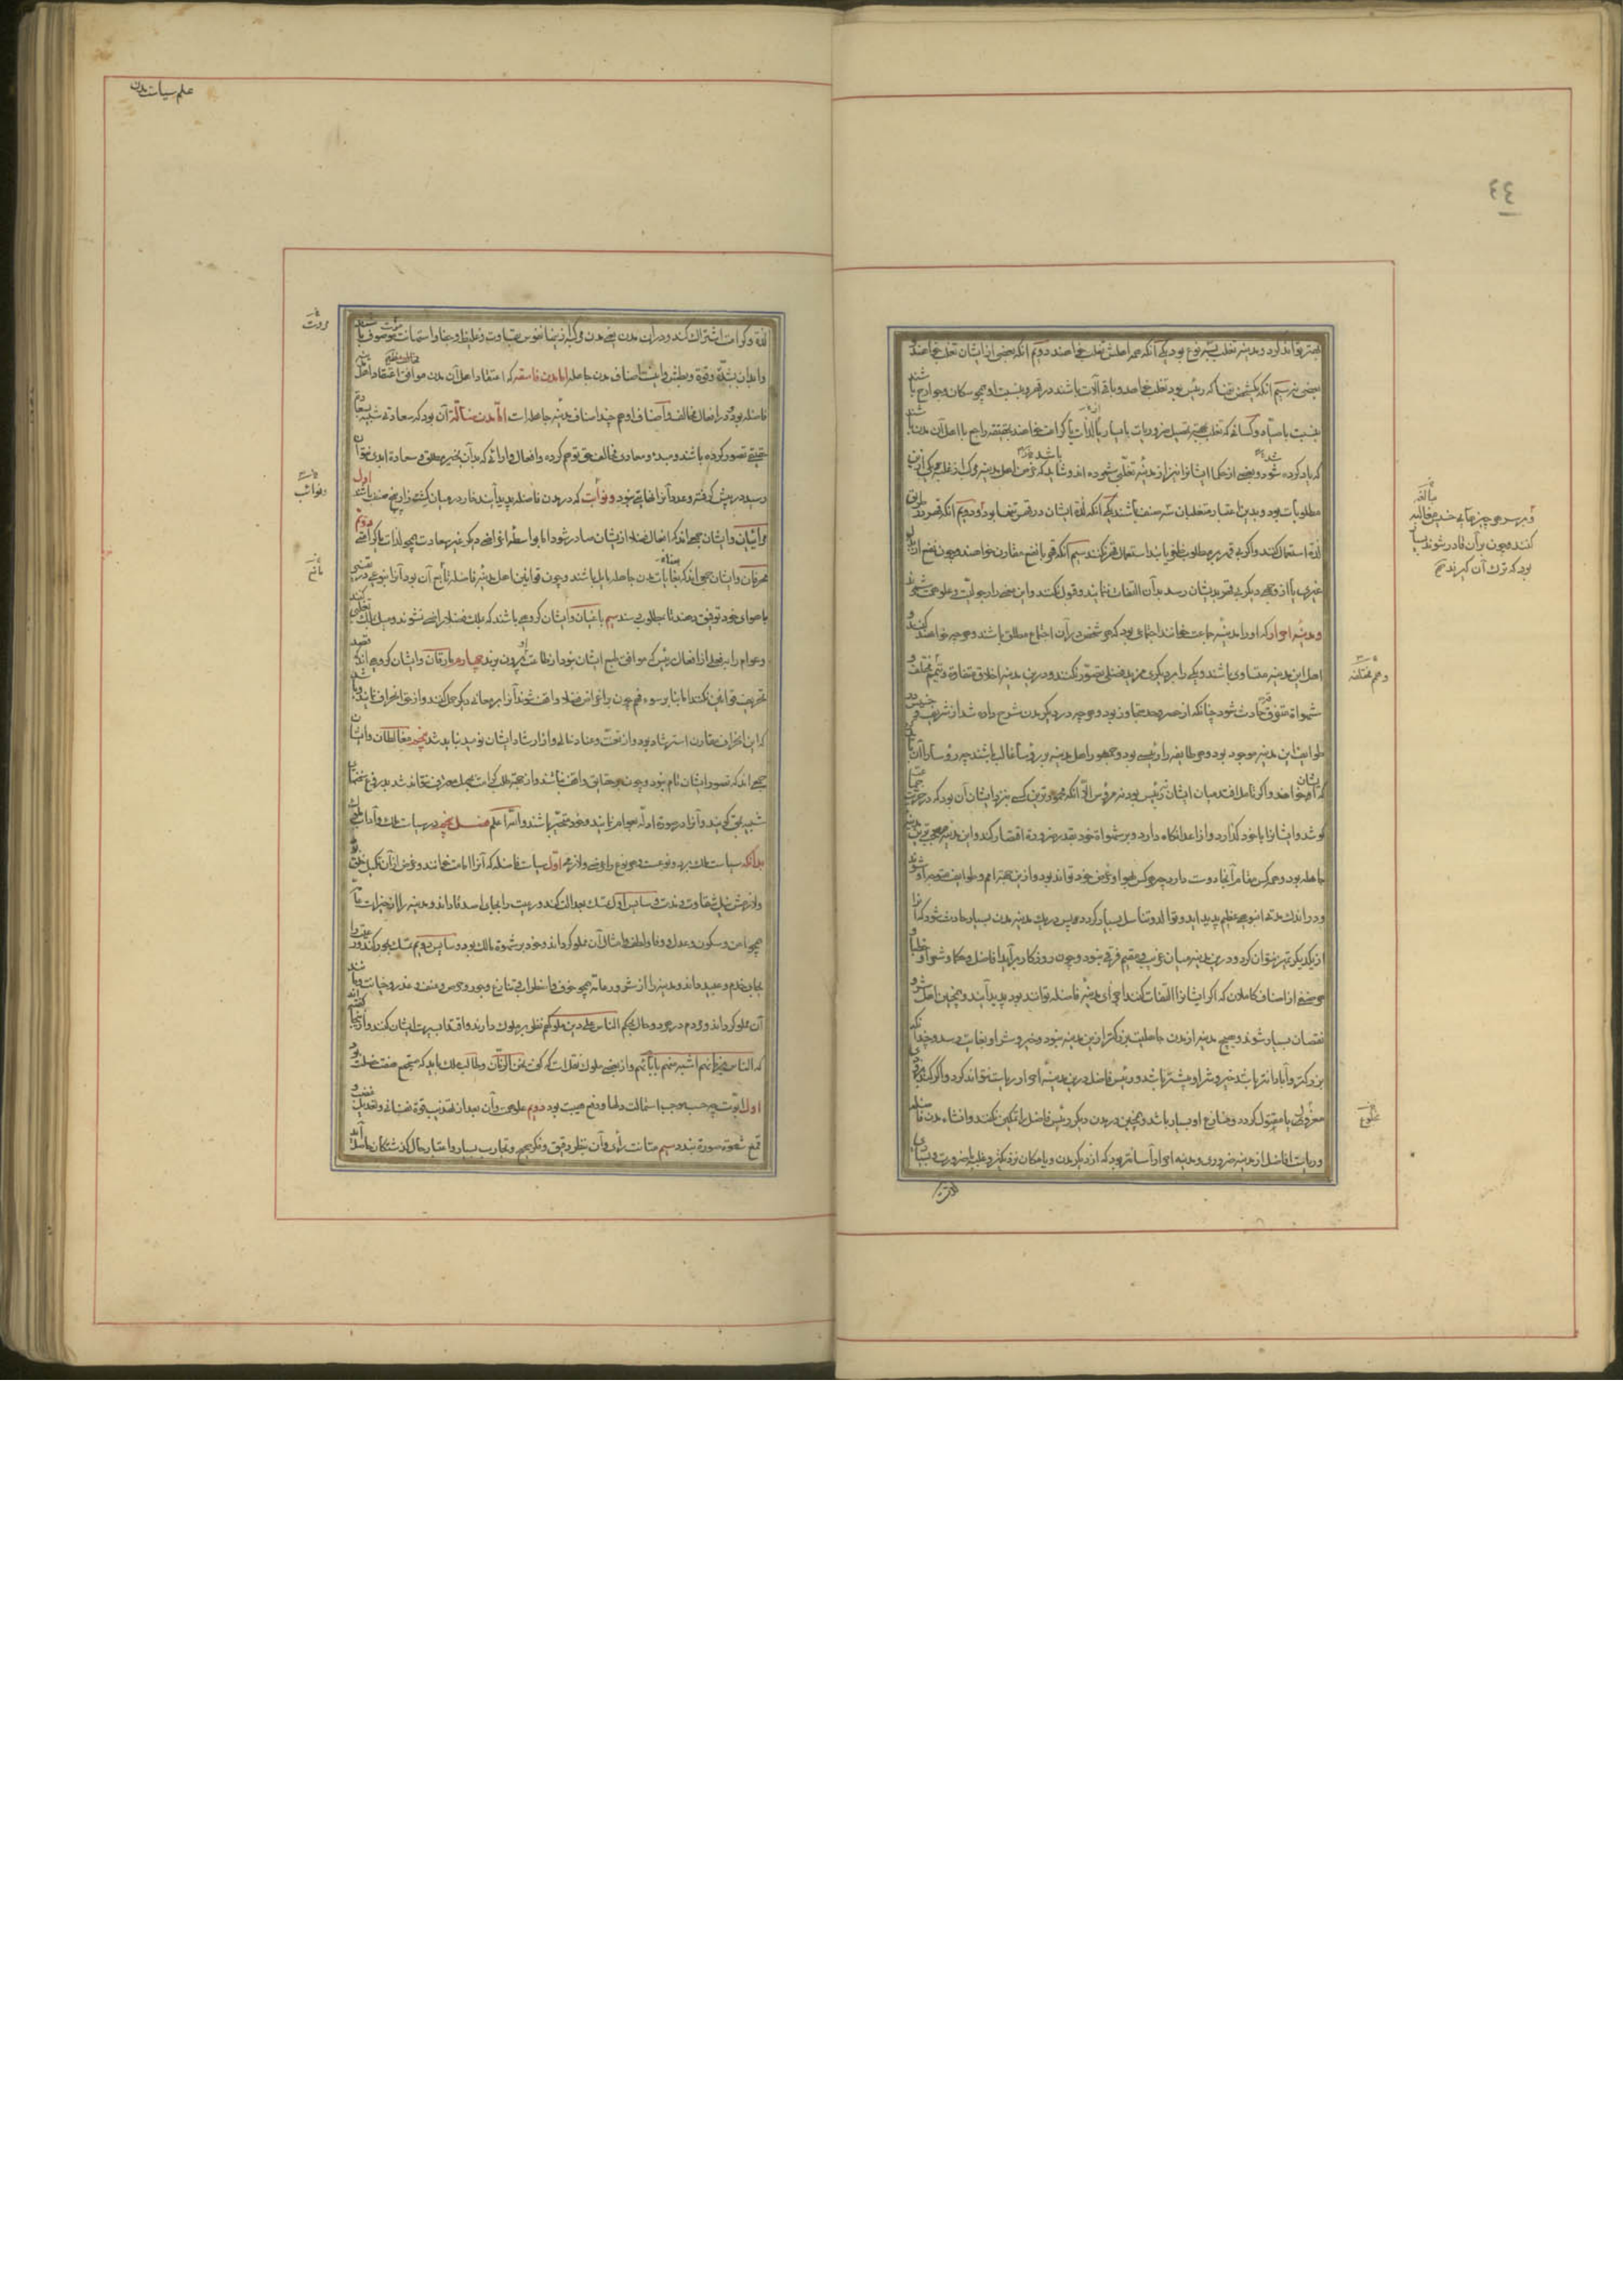 ٤٤
قهر تواند کرد و مدینه تغلب بر سه نوع بود یکی آنکه همه اهلش تغلب خواهند دویم آنکه بعضی از ایشان تغلب خواهند
بعضی نه سیم آنکه یکشخص تنها که رئیس بود تغلب خواهد و باقی آلات باشند در قهر و نسبت او همچو سکان و جوارح باشند
که یاد کرده شود و بعضی از حکما ایشانرا نیز از مدینه تغلبی شمرده اند و شاید که غرض اهل مدینه مرکب از غلبه و یکی ازین
مطلوبات بود و بدین اعتبار متغلبان سه صنف باشند یکی آنکه لذة ایشان در قهر تنها بود و دویم آنکه قهر در طریق
لذة استعمال کنند و اگر بی قهر بر مطلوب ظفر یابند استعمال قهر نکنند سیم آنکه قهر با نفع مقارن خواهند و چون نفع از بذل
غیری یا از وجهی دیگر بی قهر بدیشان رسد بدان التفات ننمایند و قبول نکنند و این
و مدینه احرار که او را مدینه جماعت خوانند اجتماعی بود که هر شخصی در آن اجتماع مطلق باشند و هر چه خواهند کنند و
اهل این مدینه متساوی باشند و یکی را بر دیگری مزید فضلی تصور نکنند و درین مدینه اخلاق متفاوة و همم مختلفه و
شهواة متفرق حادث شود چنانکه از حصر و عد متجاوز بود و هر چه در دیگر مدن شرح داده شد از شریف و خسیس در
طوایف این مدینه موجود بود و هر طایفه را رئیسی بود و جمهور اهل مدینه بر رؤسا غالب باشند چه رؤسا را آن باید کرد
که ایشان خواهند و اگر تامل افتد میان ایشان نه رئیس بود نه مرؤس الا آنکه محمودترین کسی بنزد ایشان آن بود که در حریت جماعت
کوشد و ایشانرا با خود گذارد و از اعدا نگاه دارد و بر شهواة خود بقدر ضرورة اقتصار کند و این مدینه معجب ترین مدینه
جاهله بود و همه کس مقام آنجا دوست دارد چه هر کس بهوا و غرض خود تواند بود و ازین جهة امم و طوایف متوجه او شوند
و در اندک مدة انبوهی عظیم پدید اید و توالد و تناسل بسیار گردد پس در یک مدینه مدن بسیار حادث شود که آنرا
از یکدیگر تمیز نتوان کرد و درین مدینه میان غریب و مقیم فرقی نبود و چون روزگار برآید افاضل و حکما و شعرا و خطبا و
هر صنفی از اصناف کاملان که اگر ایشانرا التقاط کنند اجزای مدینه فاضله توانند بود پدید آیند و همچنین اهل شر و
نقصان بسیار شوند و هیچ مدینه از مدن جاهلیت بزرگتر ازین مدینه نبود و خیر و شر او بغایت رسد و چندانکه
بزرگتر و آبادانتر باشد خیر و شر او بیشتر باشد و رئیس فاضل درین مدینه احرار ریاست نتواند کرد و اگر کند بزودی
معزول یا مقتول گردد و منازع او بسیار باشد و همچنین در مدن دیگر رئیس فاضل را تمکین نکنند و انشاء مدن فاضله
و ریاست افاضل از مدینه ضروری و مدینه احرار آسانتر بود که از دیگر مدن و بامکان نزدیکتر و غلبه با ضرورت و یسار
و بر سر هر چیزها بی خسیس مغالبه مبالغه
کنند و چون برآن قادر شوند بسا
بود که ترک آن گیرند صح
و همم مختلفه
مخلوع
علم سیاست مدن
لذة و کرامت اشتراک کند و در آن مدن یعنی مدن مرکبه ازینها نفوس بقساوت و غلظ و جفا و استهانت موت موصوف باشند
و ابدان بشدّة و قوة و بطش و اینست اصناف مدن جاهله اما مدن فاسقه که اعتقاد اهل آن مدن موافق اعتقاد اهل مدینه
فاضله بود و در افعال مخالف و اصناف او هم چند اصناف مدینه جاهله است اما مدن ضالّه آن بود که سعادتی شبیه بسعادة
حقیقی تصور کرده باشند و مبدء و معادی مخالف حق توهم کرده و افعال و ارائی که بدان بخیر مطلق و سعادة ابدی نتوان
رسید در پیش گرفته و عدد آنرا نهایتی نبود و نوابت که در مدن فاضله پدید آیند خار در میان کشته زار پنج صنف باشند اول
مرائیان و ایشان جمعی اند که افعال فضلا از یشان صادر شود اما بواسطه اغراضی دیگر غیر سعادت همچو لذات یا کرامتی دویم
محرفان و ایشان جمعی اند که بغایات مدن جاهله مایل باشند و چون قوانین اهل مدینه فاضله مانع آن بود آنرا بنوعی از تفسیر
با هوای خود توفیق دهند تا بمطلوب رسند سیم باغیان و ایشان گروهی باشند که بملک فضلا راضی نشوند و میل بملک تغلبی کنند
و عوام را بفعلی از افعال رئیس که موافق طبع ایشان نبود از طاعت او بیرون برند چهارم مارقان و ایشان گروهی اند که قصد
تحریف قوانین نکنند اما بنابر سوء فهم چون بر اغراض فضلا واقف نشوند آنرا بر معانی دیگر حمل کنند و از حق انحراف نمایند و باشد
که این انحراف مقارن استرشاد بود و از تعنت و عناد خالی و از ارشاد ایشان نومید نباید شد پنجم مغالطان و ایشان
جمعی اند که تصور ایشان تام نبود و چون بر حقایق واقف نباشند و از جهة طلب کرامت بجهل معترف نتوانند شد بدروغ سخنهای
شبیه بحق گویند و آنرا در صورة ادله بعوام نمایند و خود متحیر باشند والله اعلم فصل پنجم در سیاست ملک و آداب ملوک
بدانکه سیاست ملک بر دو نوعست و هر نوع را غرضی و لازمی اول سیاست فاضله که آنرا امامت خوانند و غرض از آن تکمیل خلق بود
و لازمش نیل سعادت و سایس اول تمسک بعدالت کند و رعیت را بجای اصدقا داند و مدینه را از خیرات عامه
همچو امن و سکون و عدل و وفا و لطف و امثال آن مملو گرداند و خود بر شهوة مالک بود و سایس دویم تمسک بجور کند و رعیت را
بجای خدم و عبید داند و مدینه را از شرور عامه همچو خوف و اضطراب و تنازع و جور و حرص و عنف و غدر و خیانت و مانند
آن مملو گرداند و مردم در هر دو حال بحکم الناس علی دین ملوکهم نظر بر ملوک دارند و اقتدا بسیرت ایشان کنند و از آنجا گفته اند
که الناس بزمانهم اشبه منهم بابائهم و از بعضی ملوک نقلست که گفت نحن الزمان و طالب ملک باید که مستجمع هفت خصلت بود
اول ابوّت چه حسب موجب استمالت دلها و وقع هیبت بود دویم علو همت و آن بعد از تهذیب قوة نفسانی و تعدیل غضب و
قمع شهوة صورة بندد سیم متانت رأی و آن بنظر دقیق و فکر صحیح و تجارب بسیار و اعتبار حال گذشتگان حاصل آید
مروت
نوائب
مانع